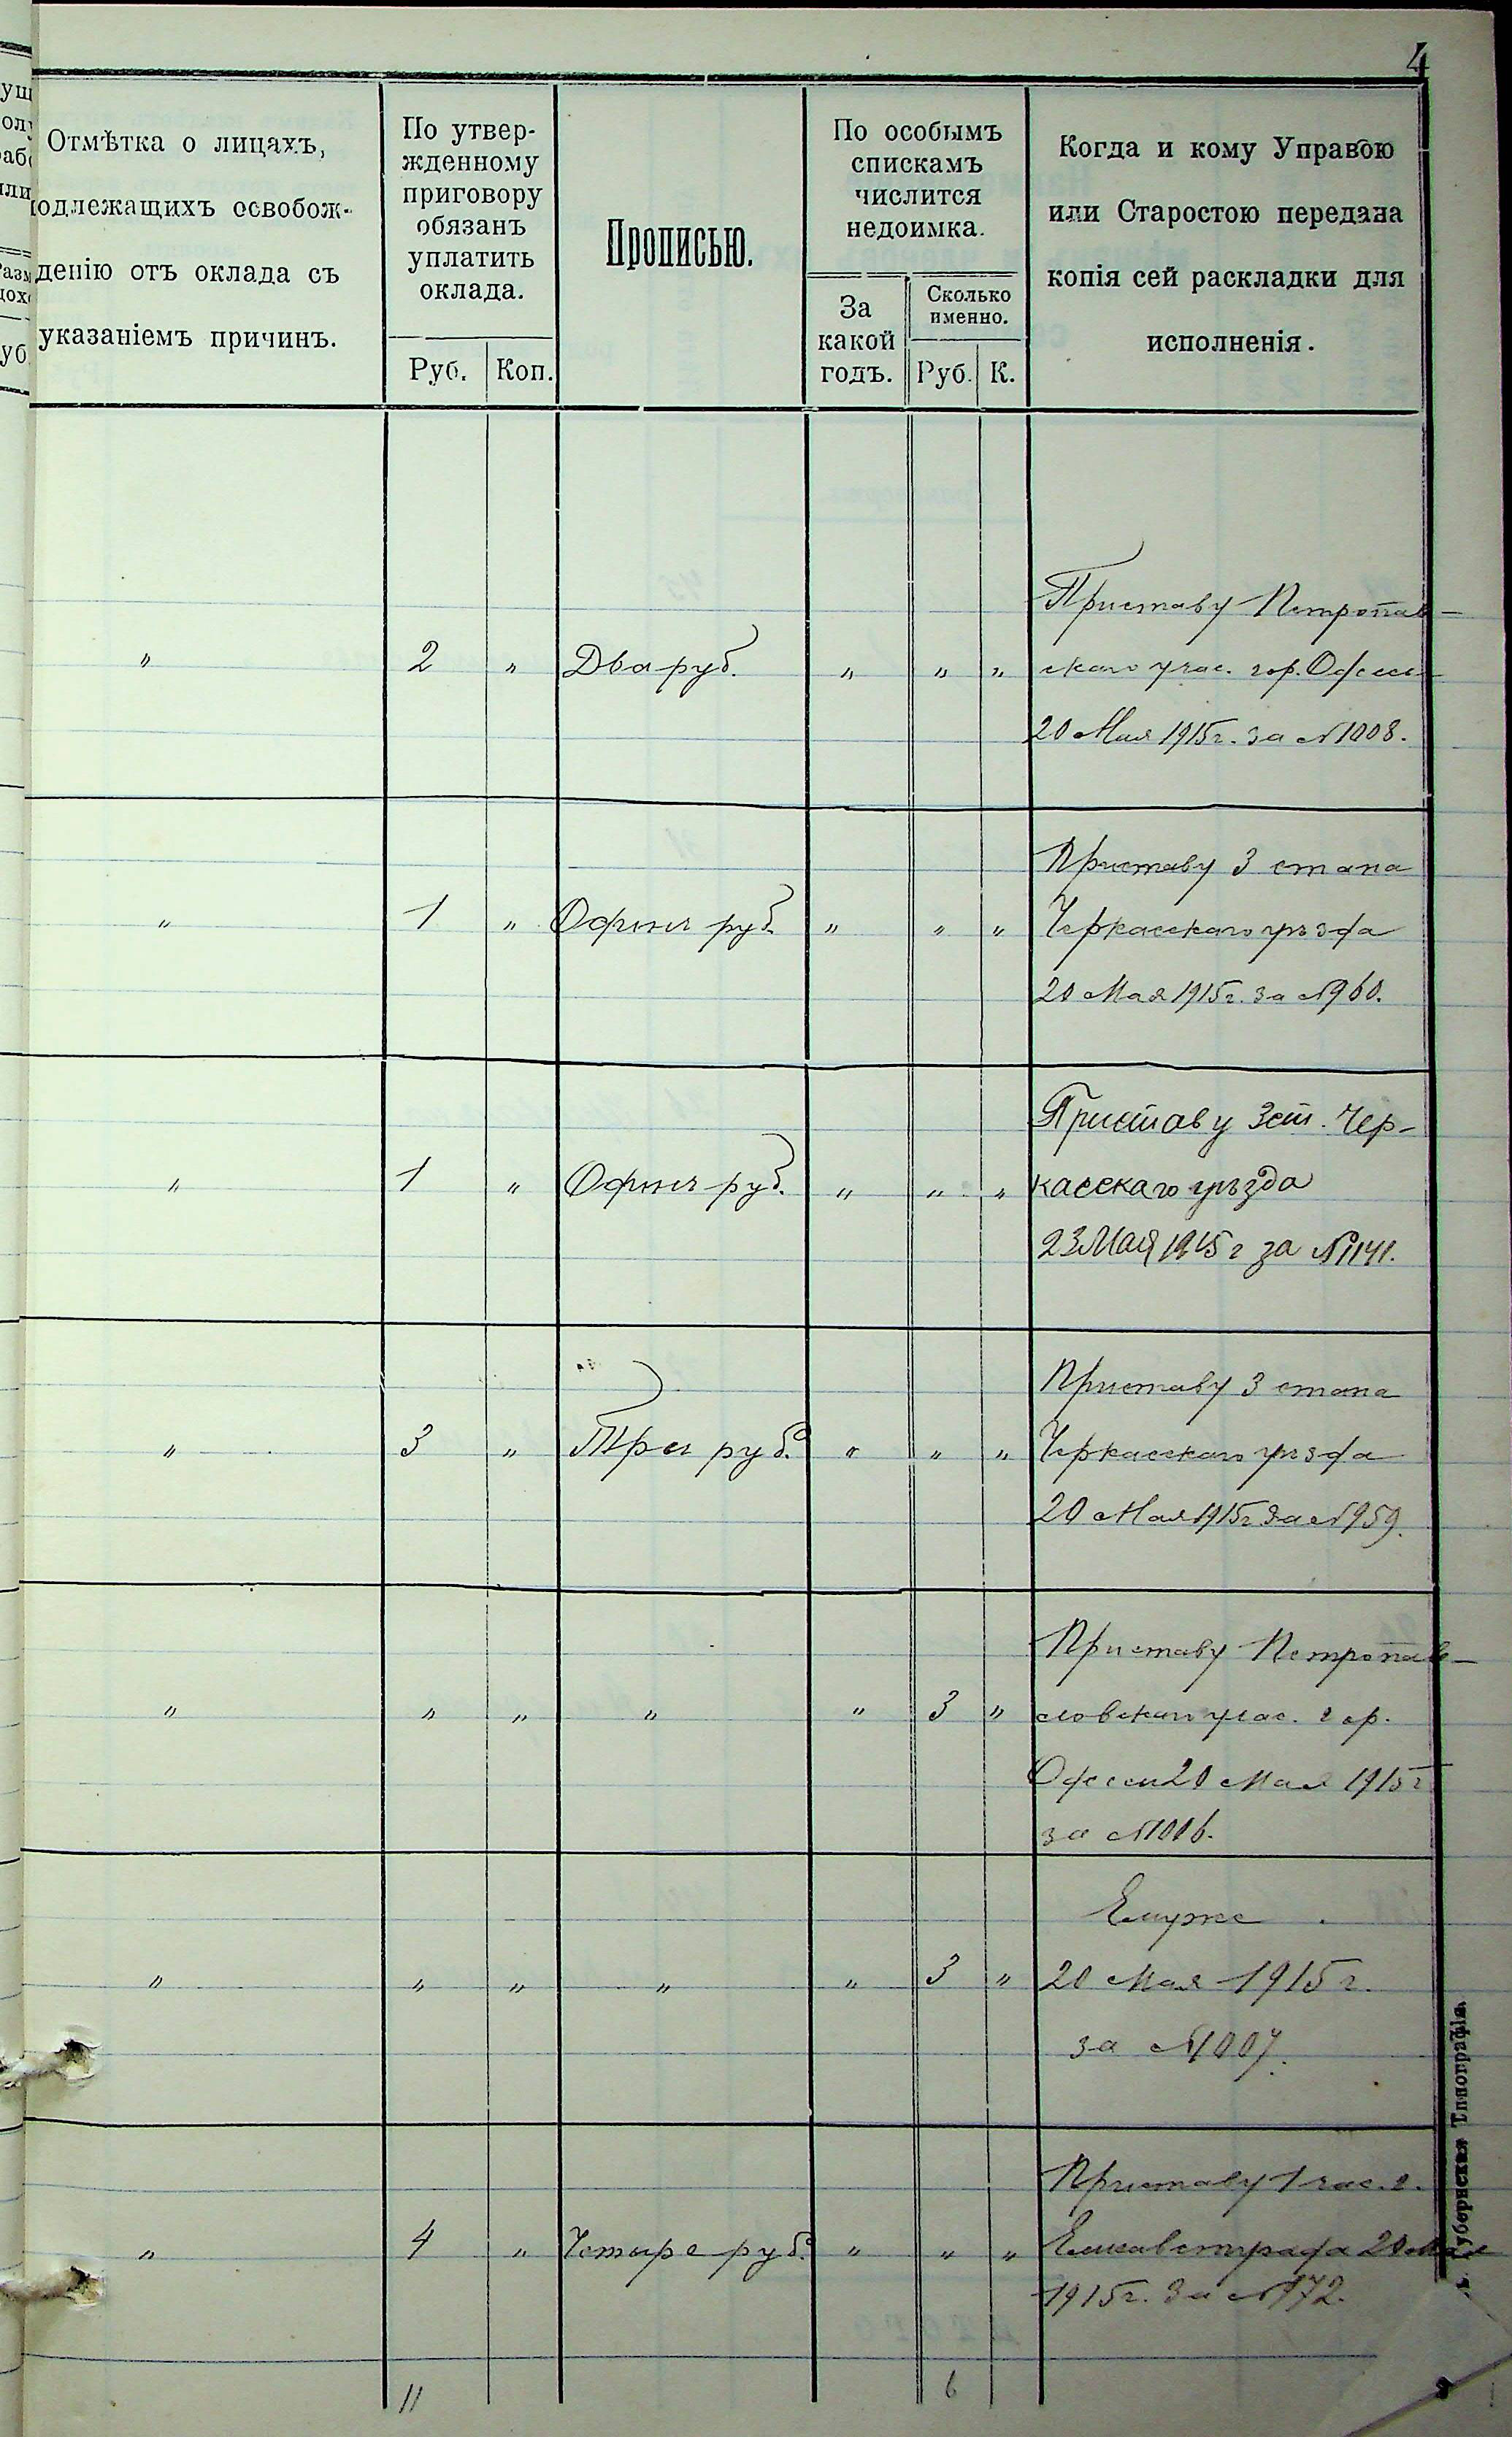 4
Отмѣтка о лицахъ,
подлежащихъ освобож-
денію отъ оклада съ
указаніемъ причинъ.
По утвер-
жденному
приговору
обязанъ
уплатить
оклада.
Руб. Коп.
Прописью.
По особымъ
спискамъ
числится
недоимка.
За
какой
годъ.
Сколько
именно.
Руб. К.
Когда и кому Управою
или Старостою передана
копія сей раскладки для
исполненія.
Приставу Петропав-
" 2 " Два руб. " " " скаго учас. гор. Одессы
20 Мая 1915 г. за № 1008.
Приставу 3 стана
" 1 " Одинъ руб. " " " Черкасскаго уѣзда
20 Мая 1915 г. за № 960.
Приставу 3 ст. Чер-
" 1 " Одинъ руб. " " " касскаго уѣзда
23 Мая 1915 г за № 1141.
Приставу 3 стана
" 3 " Три руб. " " " Черкасскаго уѣзда
20 Мая 1915 г за № 959.
Приставу Петропав-
" " " " " 3 " словскаго учас. гор.
Одессы 20 Мая 1915 г
за № 1006.
Ему же
" " " " " 3 " 20 Мая 1915 г.
за № 1007.
Приставу 1 час. г.
" 4 " Четыре руб. " " " Елисаветграда 20 Мая
1915 г. за № 972.
11 6
Губернская Типографія.